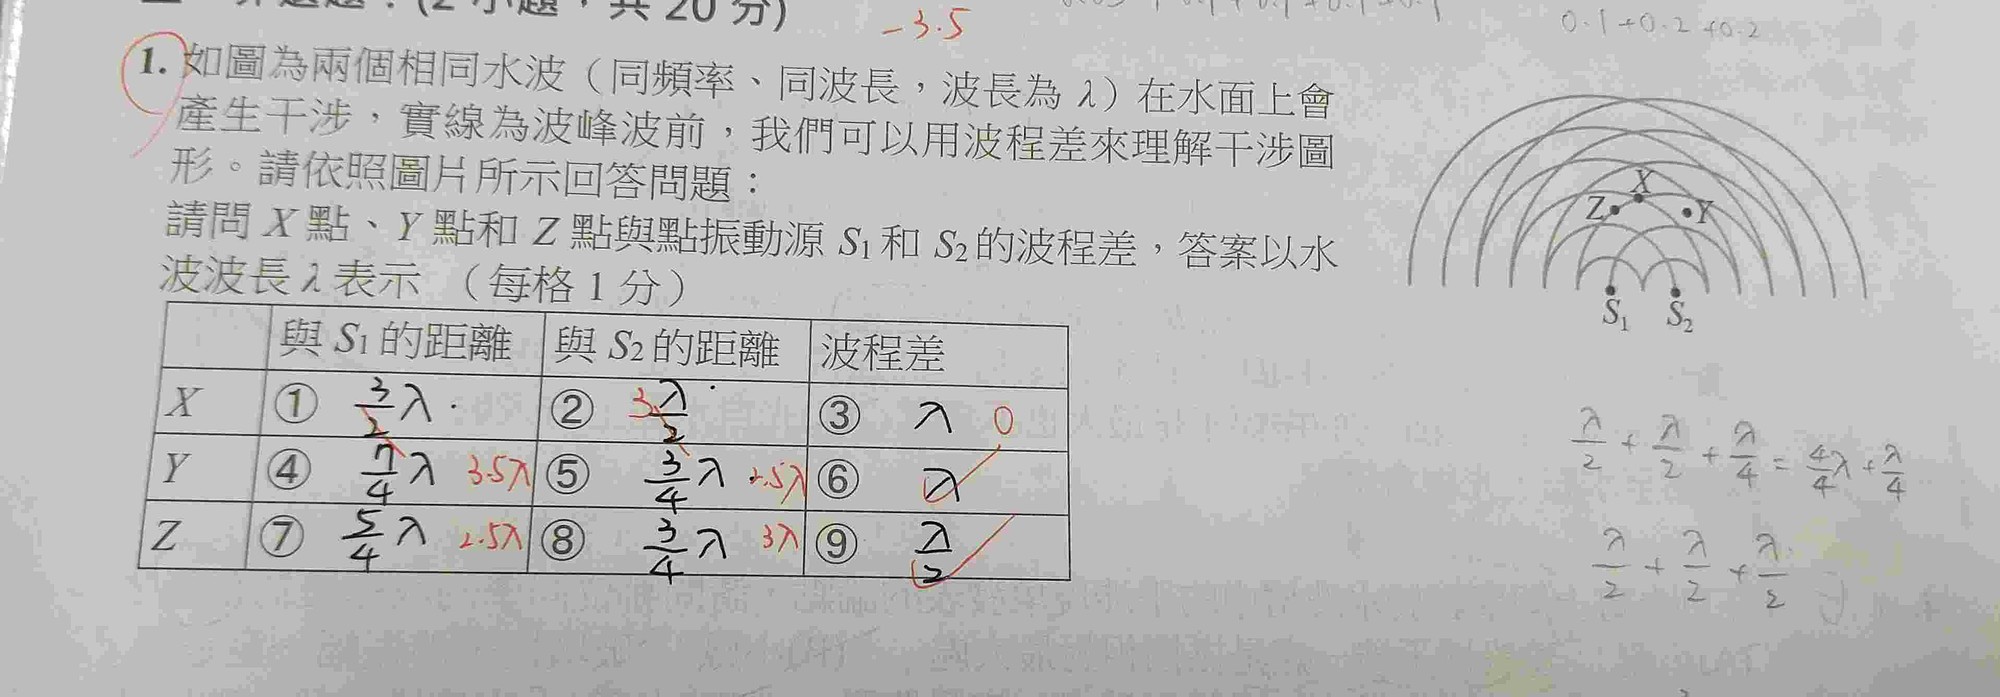 (2 小題，共 20 分)
-3.5
0.1+0.2+0.2
1. 如圖為兩個相同水波（同頻率、同波長，波長為 λ）在水面上會
產生干涉，實線為波峰波前，我們可以用波程差來理解干涉圖
形。請依照圖片所示回答問題：
請問 X 點、Y 點和 Z 點與點振動源 S₁ 和 S₂ 的波程差，答案以水
波波長 λ 表示 （每格 1 分）
X
Z Y
S₁ S₂
與 S₁ 的距離 與 S₂ 的距離 波程差
X ① 3/2 λ ② 3 λ/2 ③ λ 0
Y ④ 7/4 λ 3.5λ ⑤ 3/4 λ 2.5λ ⑥ λ
Z ⑦ 5/4 λ 2.5λ ⑧ 3/4 λ 3λ ⑨ λ/2
λ/2 + λ/2 + λ/4 = 4/4 λ + λ/4
λ/2 + λ/2 + λ/2